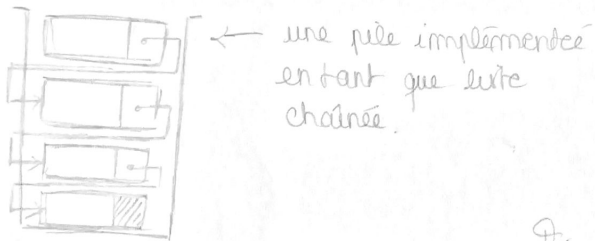 une pile implémenteé
en tant que liste
chaînée.